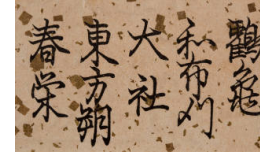 鶴亀
和布刈
大社
東方朔
春栄